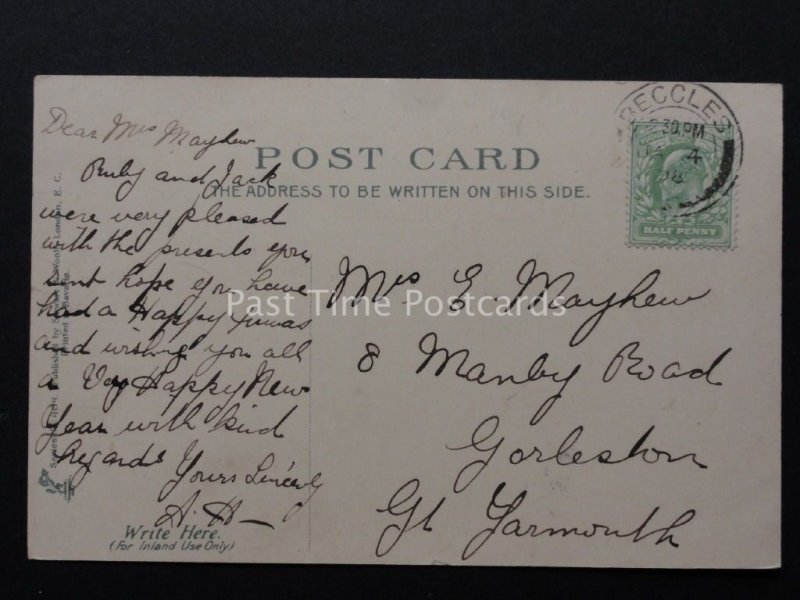 POST CARD
THE ADDRESS TO BE WRITTEN ON THIS SIDE.
BECCLES
30 PM
4
08
HALF PENNY
Dear Mrs Mayhew
Ruby and Jack
were very pleased
with the presents you
sent hope you have
had a Happy Xmas
and wishing you all
a Very Happy New
Year with kind
regards
Yours Sincerely
A. H
Mrs E. Mayhew
8 Manby Road
Gorleston
Gt Yarmouth
Write Here.
(For Inland Use Only)
Past Time Postcards